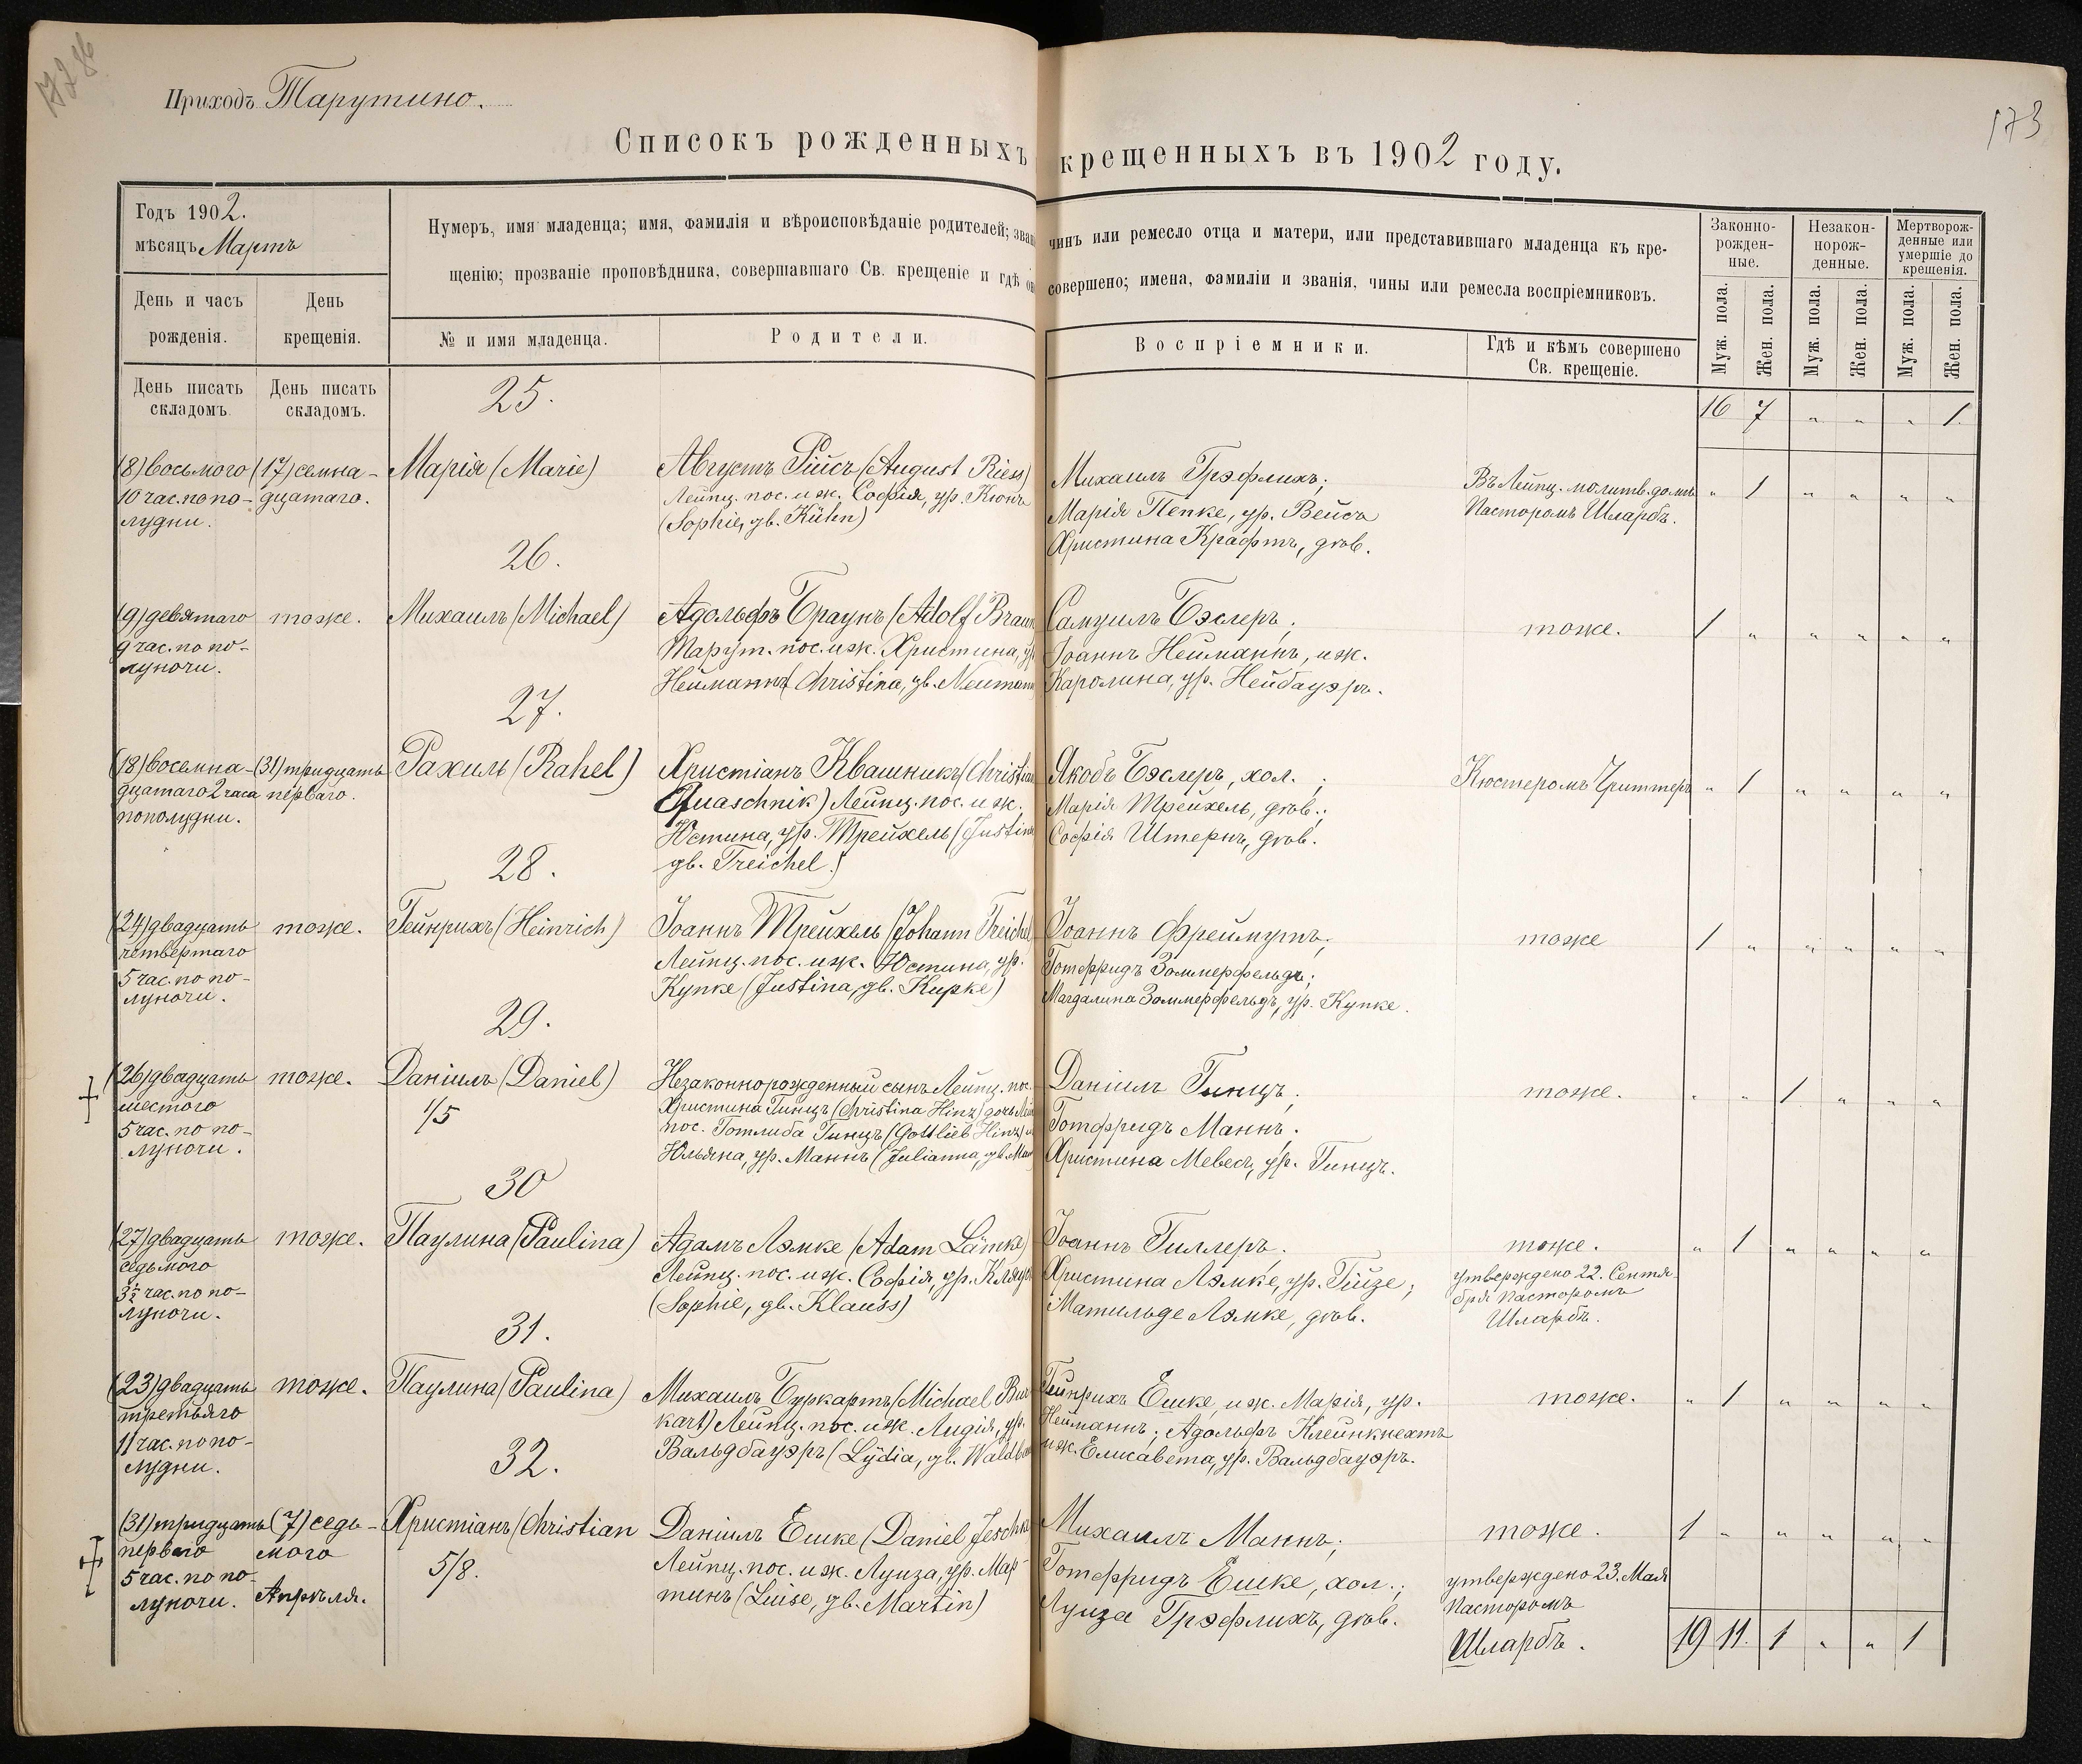 172 об
Приходъ Тарутино.
173
Списокъ рожденныхъ
крещенныхъ въ 1902 году.
Годъ 1902.
мѣсяцъ Мартъ
День и часъ рожденія.
День крещенія.
День писать складомъ.
День писать складомъ.
Нумеръ, имя младенца; имя, фамилія и вѣроисповѣданіе родителей; зва
щенію; прозваніе проповѣдника, совершавшаго Св. крещеніе и гдѣ он
чинъ или ремесло отца и матери, или представившаго младенца къ кре-
совершено; имена, фамиліи и званія, чины или ремесла воспріемниковъ.
№ и имя младенца.
Родители.
Воспріемники.
Гдѣ и кѣмъ совершено
Св. крещеніе.
Законно-
рожден-
ные.
Незакон-
норож-
денные.
Мертворож-
денные или
умершіе до
крещенія.
Муж. пола.
Жен. пола.
Муж. пола.
Жен. пола.
Муж. пола.
Жен. пола.
16 7 " " " 1.
25.
(8) восьмого
10 час. по по-
лудни.
(17) семна-
дцатаго.
Марія (Marie)
Августъ Рійсъ (August Riess)
Лейпц. пос. и ж. Софія, ур. Кюнъ
(Sophie, gb. Kühn)
Михаилъ Грэфлихъ;
Марія Пепке, ур. Вейсъ
Христина Крафтъ, дѣв.
Въ Лейпц. молитв. домѣ
Пасторомъ Шларбъ.
" 1 " " " "
26.
(9) девятаго
9 час. по по-
луночи.
тоже.
Михаилъ (Michael)
Адольфъ Браунъ (Adolf Braun
Тарут. пос. и ж. Христина, ур.
Нейманнъ (Christina, gb. Neumann
Самуилъ Бэслеръ;
Іоаннъ Нейманнъ, и ж.
Каролина, ур. Нейбауэръ.
тоже.
1 " " " " "
27.
(18) восемна-
дцатаго 2 часа
пополудни.
(31) тридцать
перваго.
Рахиль (Rahel)
Христіанъ Квашникъ (Christian
Quaschnik) Лейпц. пос. и ж.
Юстина, ур. Трейхель (Justine
gb. Treichel.)
Якобъ Бэслеръ, хол. ;
Марія Трейхель, дѣв.;
Софія Штернъ, дѣв.
Кюстеромъ Гриттеръ
" 1 " " " "
28.
(24) двадцать
четвертаго
5 час. по по-
луночи.
тоже.
Гейнрихъ (Heinrich)
Іоаннъ Трейхель (Johann Treichel
Лейпц. пос. и ж. Юстина, ур.
Купке (Justina, gb. Kupke)
Іоаннъ Фреймутъ;
Готфридъ Зоммерфельдъ;
Магдалина Зоммерфельдъ, ур. Купке.
тоже
1 " " " " "
29.
(26) двадцать
шестого
5 час. по по-
луночи.
тоже.
Даніилъ (Daniel)
1/5
Незаконнорожденный сынъ Лейпц. пос.
Христина Гинцъ (Christina Hinz) дочь Лей
пос. Готлиба Гинцъ (Gottlieb Hinz) и
Юльяна, ур. Маннъ (Julianna, gb. Man
Даніилъ Гинцъ;
Готфридъ Маннъ.
Христина Мевесъ, ур. Гинцъ.
тоже.
" " 1 " " "
30
(27) двадцать
седьмого
3½ час. по по-
луночи.
тоже.
Паулина (Paulina)
Адамъ Лэмке (Adam Lämke)
Лейпц. пос. и ж. Софія, ур. Клаус
(Sophie, gb. Klauss)
Іоаннъ Гиллеръ;
Христина Лэмке, ур. Гійзе;
Матильде Лэмке, дѣв.
тоже.
утверждено 22. Сентя-
бря Пасторомъ
Шларбъ.
" 1 " " " "
31.
(23) двадцать
третьяго
11 час. по по-
лудни.
тоже.
Паулина (Paulina)
Михаилъ Буркартъ (Michael Bur
kart) Лейпц. пос. и ж. Лидія, ур.
Вальдбауэръ (Lydia, gb. Waldba
Гейнрихъ Ешке, и ж. Марія, ур.
Нейманнъ; Адольфъ Клейнкнехтъ
и ж. Елисавета, ур. Вальдбауэръ.
тоже.
" 1 " " " "
32.
(31) тридцать
перваго
5 час. по по-
луночи.
(7) седь-
мого
Апрѣля.
Христіанъ (Christian
5/8.
Даніилъ Ешке (Daniel Jeschke
Лейпц. пос. и ж. Луиза, ур. Мар-
тинъ (Luise, gb. Martin)
Михаилъ Маннъ;
Готфридъ Ешке, хол.;
Луиза Грэфлихъ, дѣв.
тоже.
утверждено 23. Мая
Пасторомъ
Шларбъ.
1 " " " " "
19 11. 1 " " 1